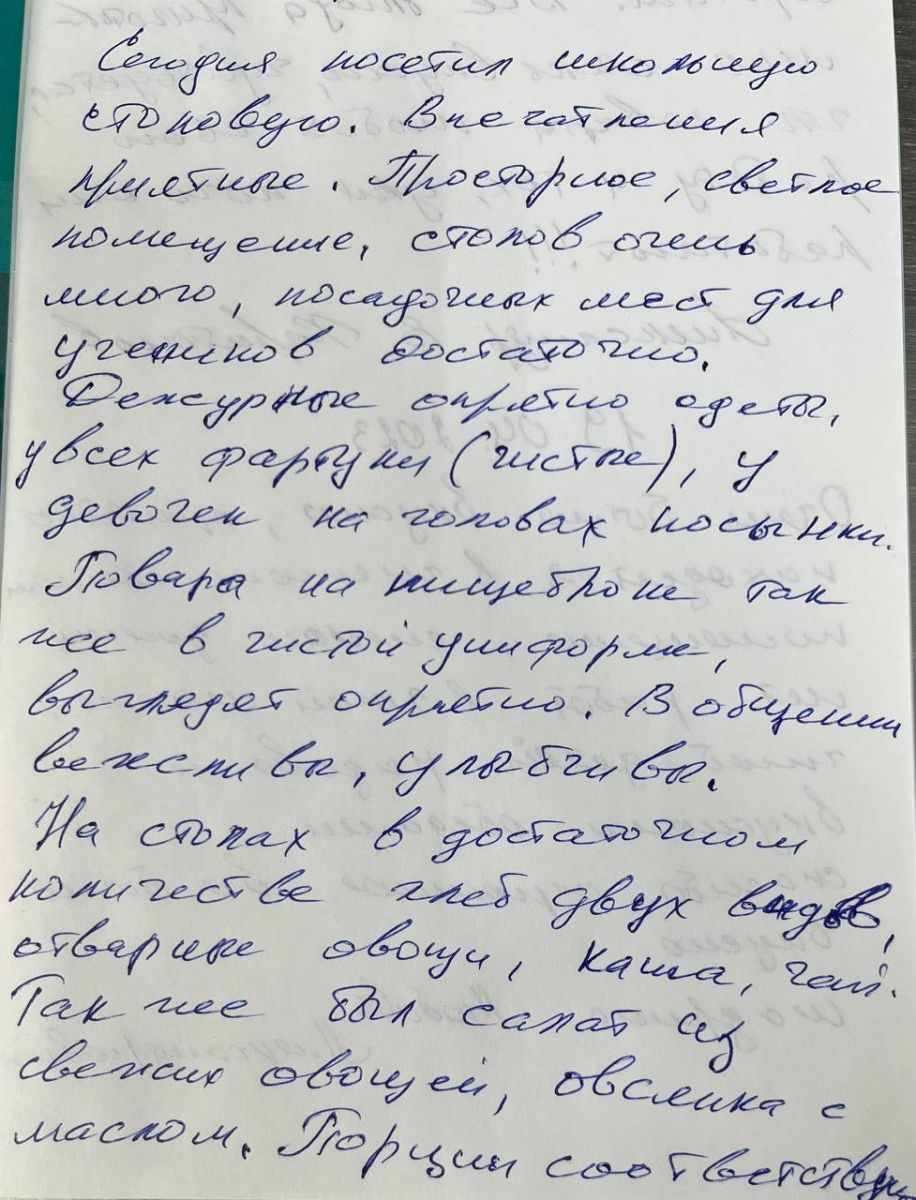 Сегодня посетил школьную
столовую. Впечатления
приятные. Просторное, светлое
помещение, столов очень
много, посадочных мест для
учеников достаточно.
Дежурные опрятно одеты,
у всех фартуки (чистые), у
девочек на головах косынки.
Повара на пищеблоке так
же в чистой униформе,
выглядят опрятно. В общении
вежливы, улыбчивы.
На столах в достаточном
количестве хлеб двух видов,
отварные овощи, каша, чай.
Так же был салат из
свежих овощей, овсянка с
маслом. Порции соответствуют